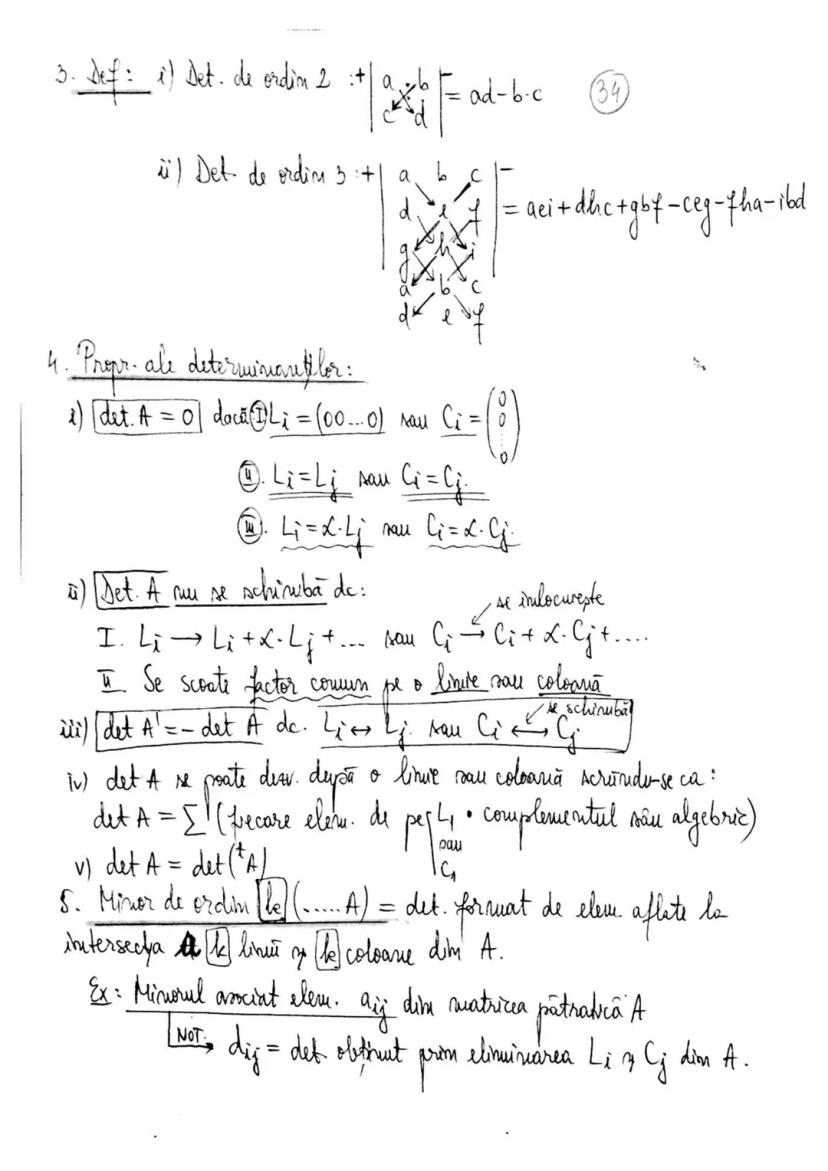 3. Def: i) Det. de ordin 2 :+| a b |⁻ = ad-b·c (34)
c d
ii) Det. de ordin 3 :+| a b c |⁻
d e f = aei+dhc+gbf-ceg-fha-ibd
g h i
a b c
d e f
4. Propr. ale determinanților:
i) det. A = 0 dacă (I) Li = (00...0) sau Ci = (0 0 ... 0)
(II). Li = Lj sau Ci = Cj.
(III). Li = α·Lj sau Ci = α·Cj.
ii) Det. A nu se schimbă dc:
se înlocuiește
I. Li → Li + α·Lj + ... sau Ci → Ci + α·Cj + ....
II Se scoate factor comun pe o linie sau coloană
iii) det A' = - det A dc. Li ↔ Lj. sau Ci ↔ Cj se schimbă
iv) det A se poate dezv. după o linie sau coloană scriindu-se ca:
det A = Σ (fiecare elem. de pe L1 · complementul său algebric)
sau
C1
v) det A = det(ᵗA)
5. Minor de ordin k (.....A) = det. format de elem. aflate la
intersecția a k linii și k coloane din A.
Ex: Minorul asociat elem. aij din matricea pătratică A
NOT. dij = det obținut prin eliminarea Li și Cj din A.